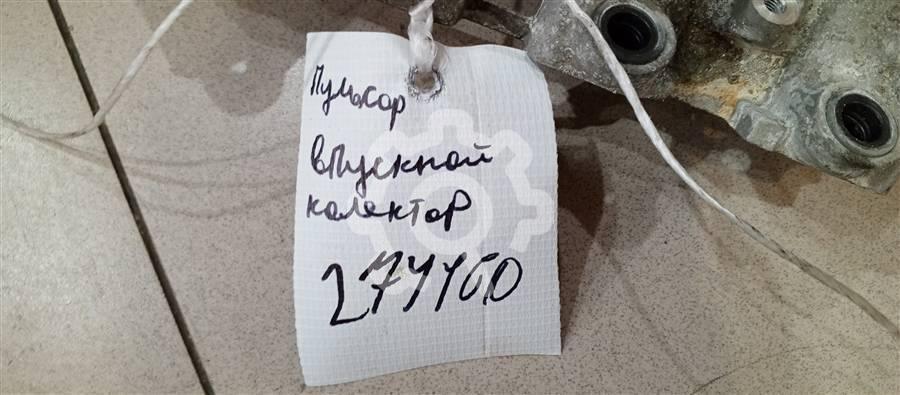 Пульсар
впускной
колектор
274460